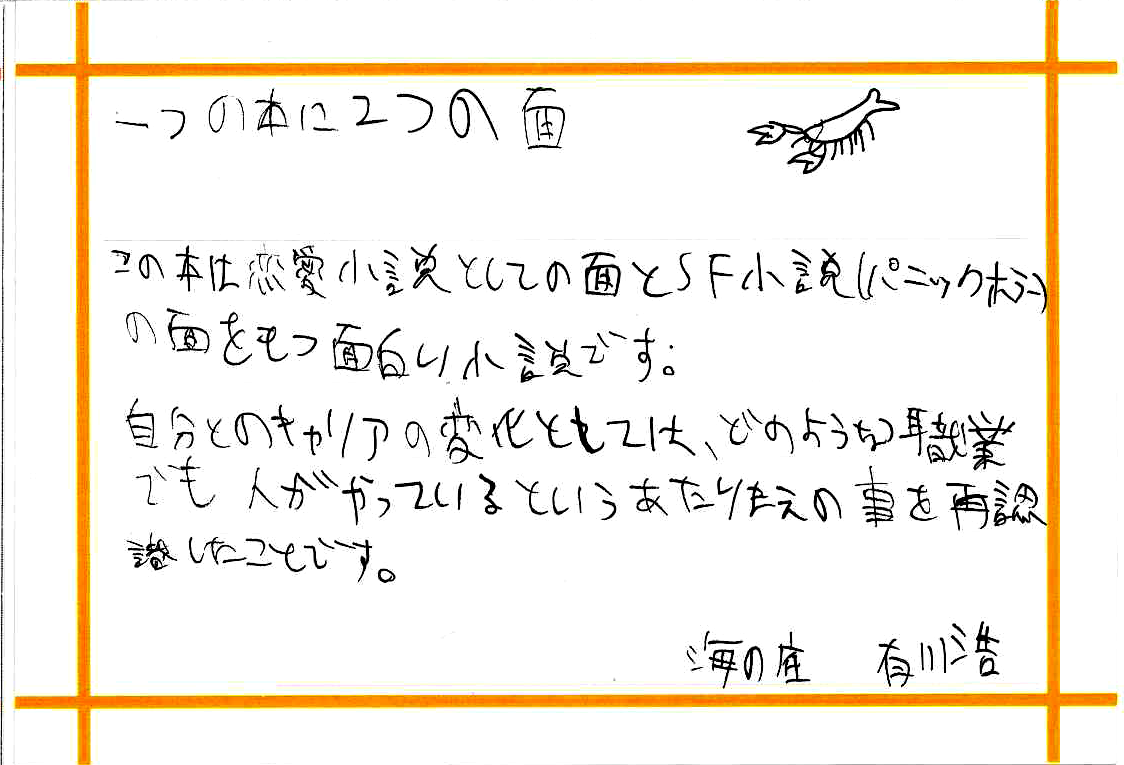 一つの本に2つの面
この本は恋愛小説としての面とSF小説(パニックホラー)
の面をもつ面白い小説です。
自分とのキャリアの変化としては、どのような職業
でも人がやっているというあたりまえの事を再認
識したことです。
海の底 有川浩